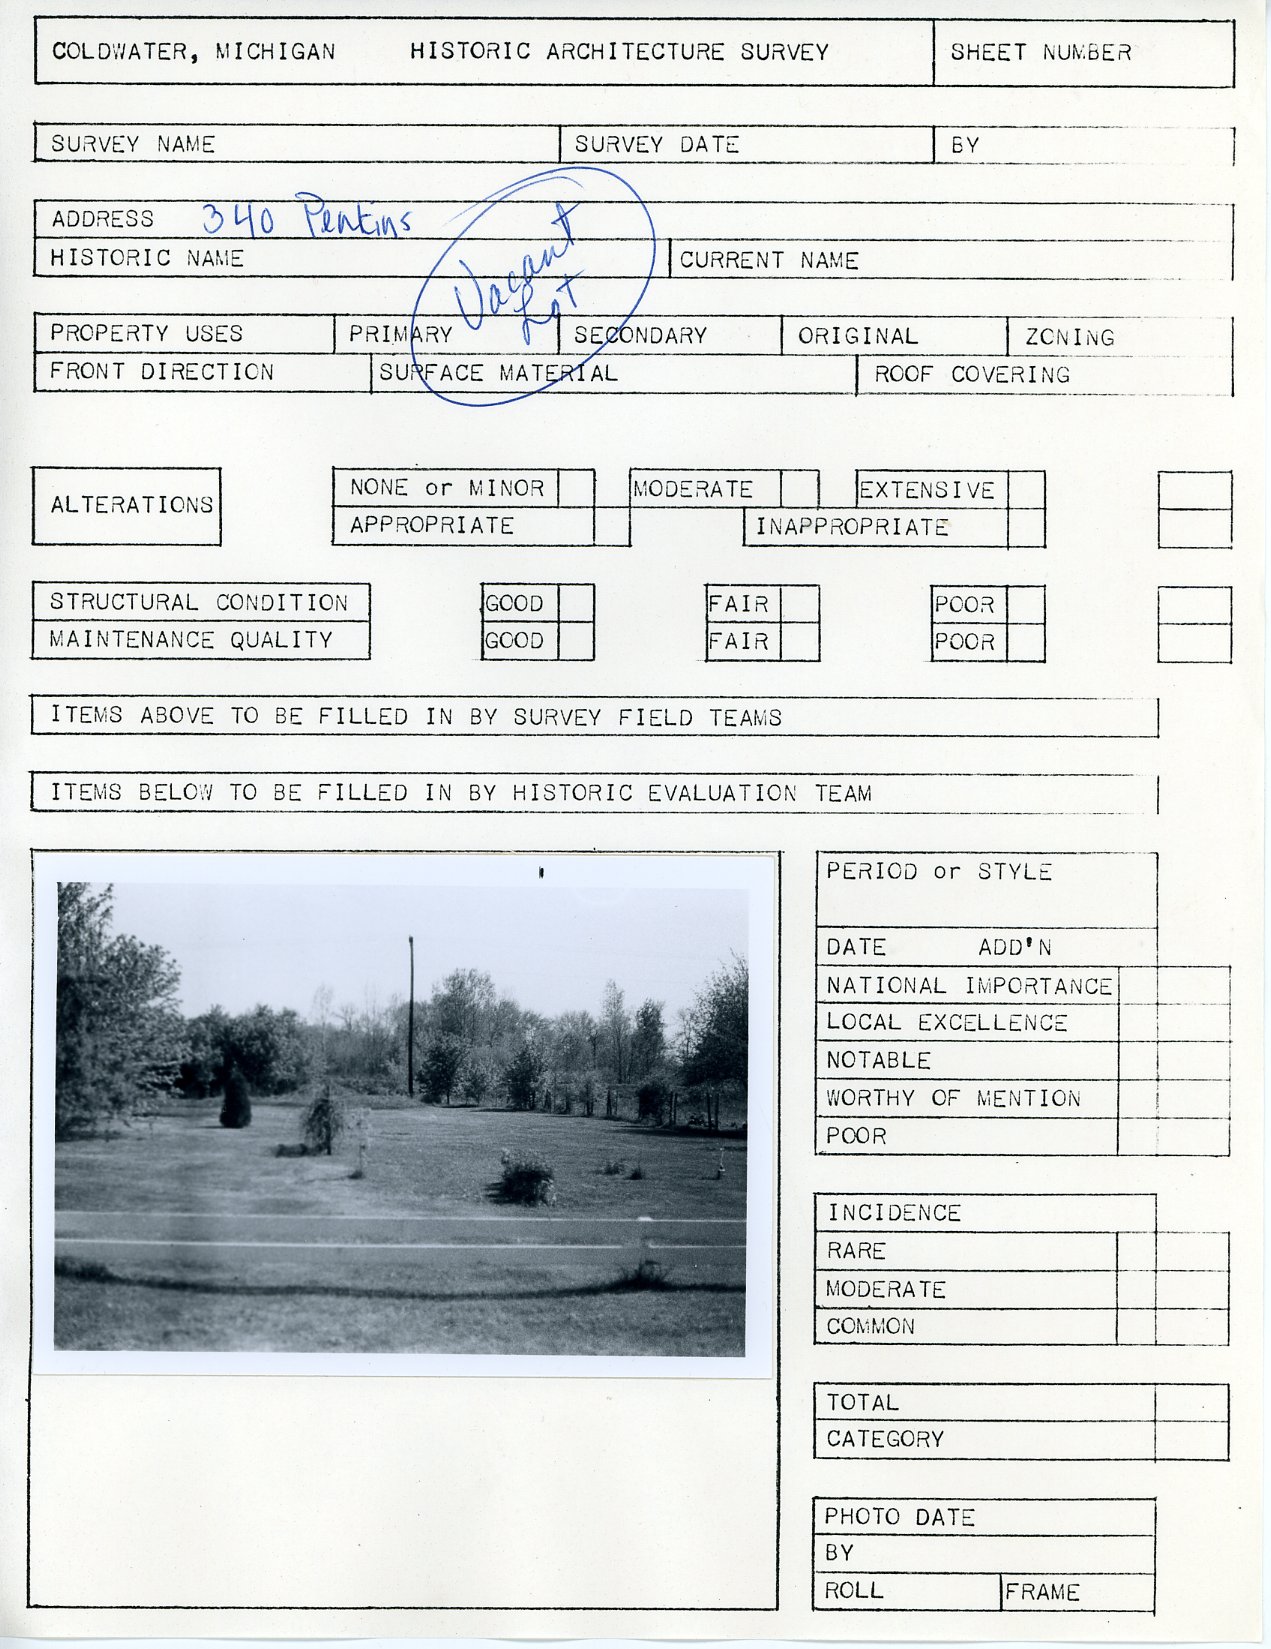 COLDWATER, MICHIGAN HISTORIC ARCHITECTURE SURVEY SHEET NUMBER
SURVEY NAME SURVEY DATE BY
ADDRESS 340 Perkins
HISTORIC NAME CURRENT NAME
Vacant
Lot
PROPERTY USES PRIMARY SECONDARY ORIGINAL ZONING
FRONT DIRECTION SURFACE MATERIAL ROOF COVERING
ALTERATIONS
NONE or MINOR MODERATE EXTENSIVE
APPROPRIATE INAPPROPRIATE
STRUCTURAL CONDITION GOOD FAIR POOR
MAINTENANCE QUALITY GOOD FAIR POOR
ITEMS ABOVE TO BE FILLED IN BY SURVEY FIELD TEAMS
ITEMS BELOW TO BE FILLED IN BY HISTORIC EVALUATION TEAM
PERIOD or STYLE
DATE ADD'N
NATIONAL IMPORTANCE
LOCAL EXCELLENCE
NOTABLE
WORTHY OF MENTION
POOR
INCIDENCE
RARE
MODERATE
COMMON
TOTAL
CATEGORY
PHOTO DATE
BY
ROLL FRAME